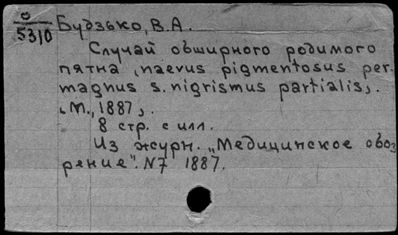 О
5310
Будзько, В.А.
Случай обширного родимого
пятна, naevus pigmentosus per-
magnus s. nigrismus partialis,.
М., 1887,.
8 стр. с илл.
Из журн. „Медицинское обоз-
рение". N7 1887.